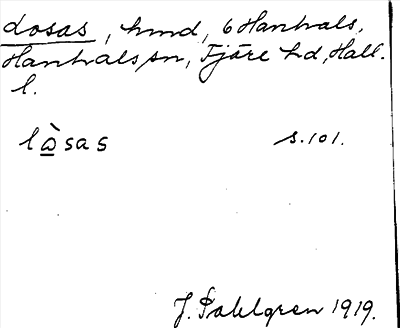 dosas, hmd, 6 Hanhals,
Hanhals sn, Fjäre hd, Hall.
l.
làsas s. 101.
J. Sahlgren 1919.